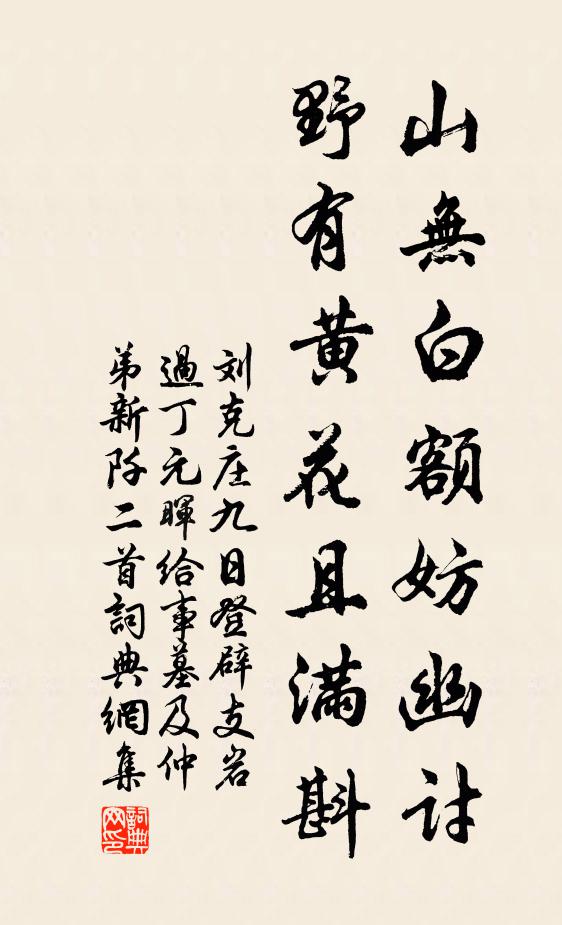 山無白額妨幽討
野有黄花且满斟
刘克庄九日登辟支岩
過丁元暉给事墓及仲
弟新阡二首詞典網集
詞典网印